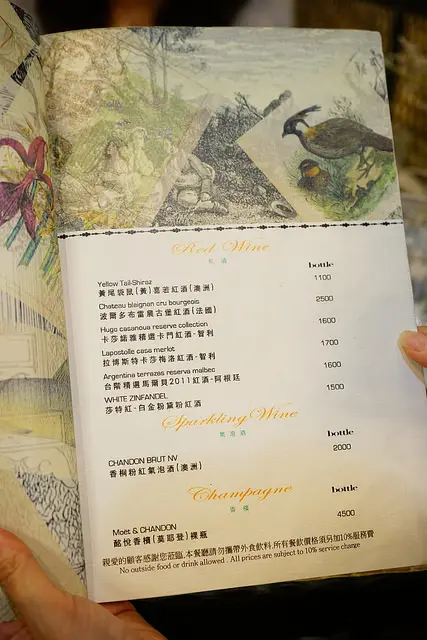 Red Wine
紅酒
bottle
Yellow Tail-Shiraz 1100
黃尾袋鼠(黃)喜若紅酒(澳洲)
Chateau blaignan cru bourgeois 2500
波爾多布雷風古堡紅酒(法國)
Hugo casanoua reserve collection 1600
卡莎諾雅精選卡門紅酒-智利
Lapostolle casa merlot 1700
拉博斯特卡莎梅洛紅酒-智利
Argentina terrazas reserva malbec 1600
台階精選馬爾貝2011紅酒-阿根廷
WHITE ZINFANDEL 1500
莎特紅-白金粉黛粉紅酒
Sparkling Wine
氣泡酒
bottle
CHANDON BRUT NV 2000
香桐粉紅氣泡酒(澳洲)
Champagne
香檳
bottle
Moët & CHANDON 4500
酩悅香檳(莫耶登)裸瓶
親愛的顧客感謝您蒞臨,本餐廳請勿攜帶外食飲料,所有餐飲價格須另加10%服務費
No outside food or drink allowed . All prices are subject to 10% service charge